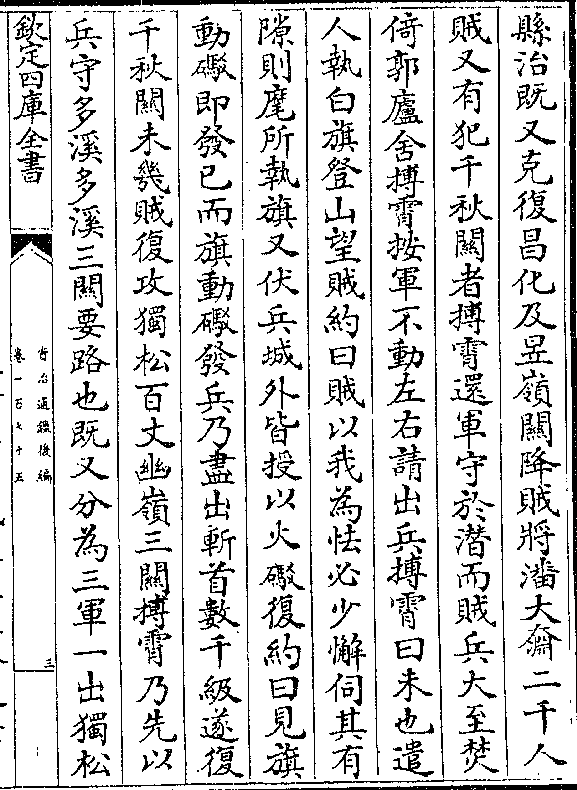 縣治既又克復昌化及昱嶺關降賊將潘大齋二千人
賊又有犯千秋關者搏霄還軍守於潛而賊兵大至焚
倚郭廬舍搏霄按軍不動左右請出兵搏霄曰未也遣
人執白旗登山望賊約曰賊以我為怯必少懈伺其有
隙則麾所執旗又伏兵城外皆授以火礮復約曰見旗
動礮即發已而旗動礮發兵乃盡出斬首數千級遂復
千秋關未幾賊復攻獨松百丈幽嶺三關搏霄乃先以
兵守多溪多溪三關要路也既又分為三軍一出獨松
欽定四庫全書
資治通鑑後編
卷一百七十五
三